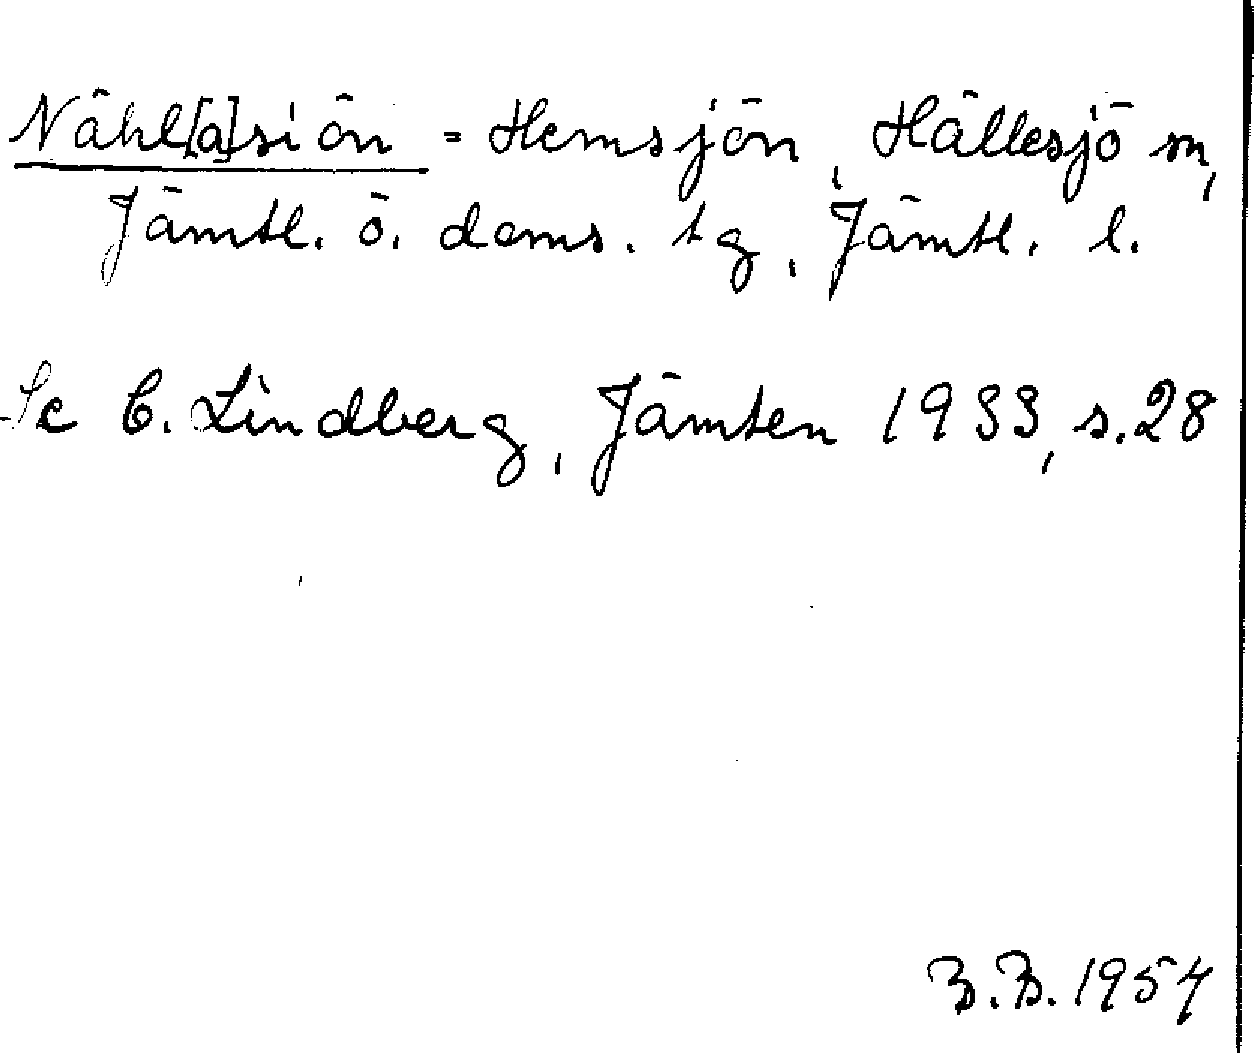 Nähl[a]siön = Hemsjön, Hällesjö sn,
Jämtl. ö. doms. tg, Jämtl. l.
Se C. Lindberg, Jämten 1933, s. 28
B. B. 1954